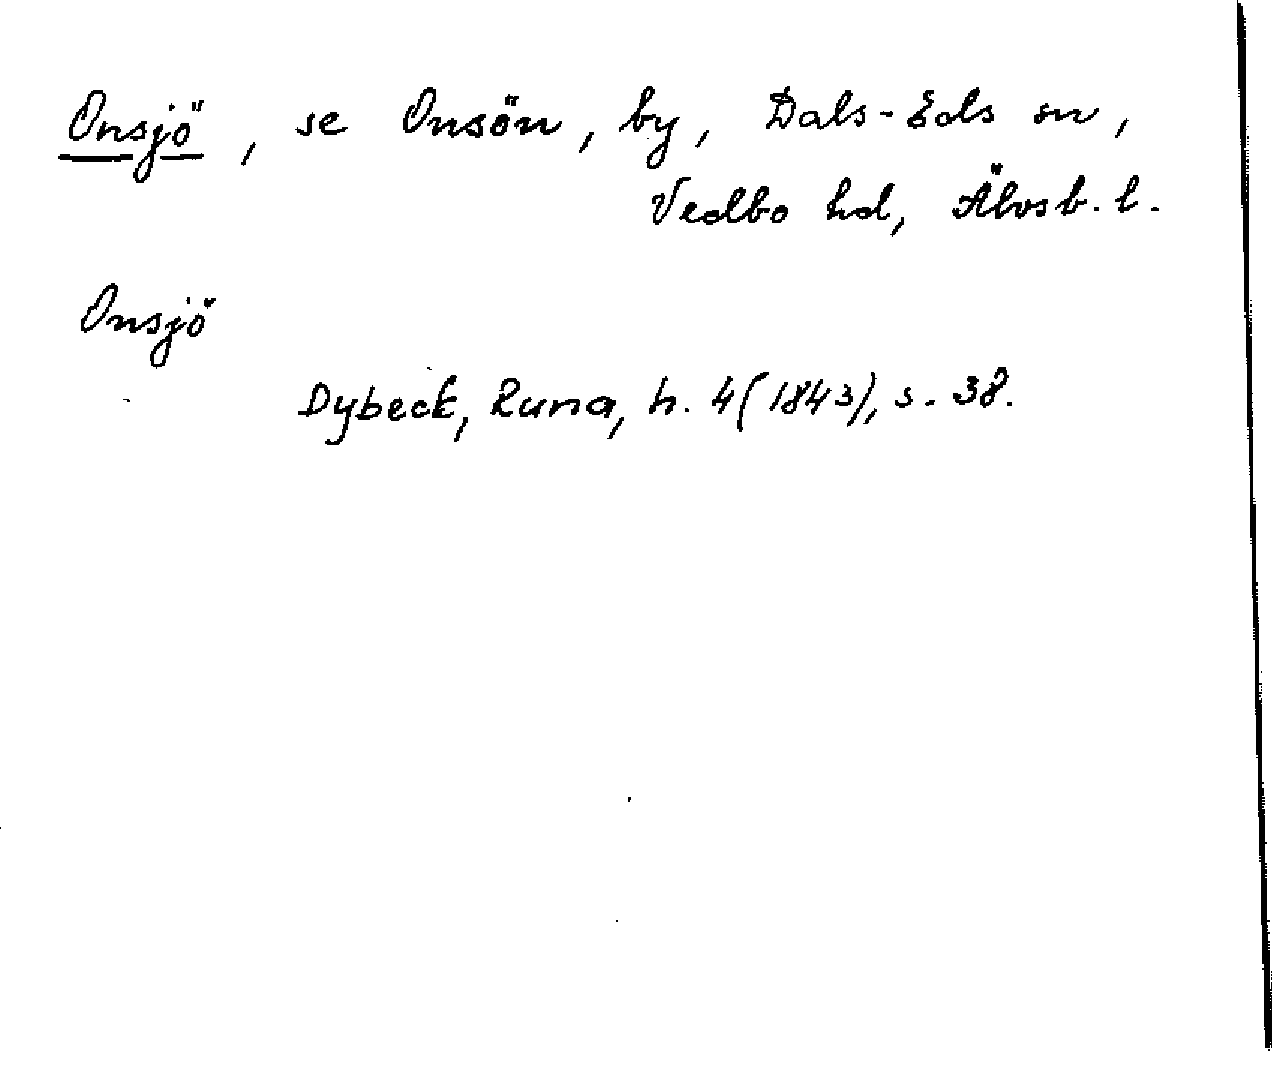 Onsjö, se Onsön, by, Dals-Eds sn,
Vedbo hd, Älvsb. l.
Onsjö
Dybeck, Runa, h. 4(1843), s. 38.